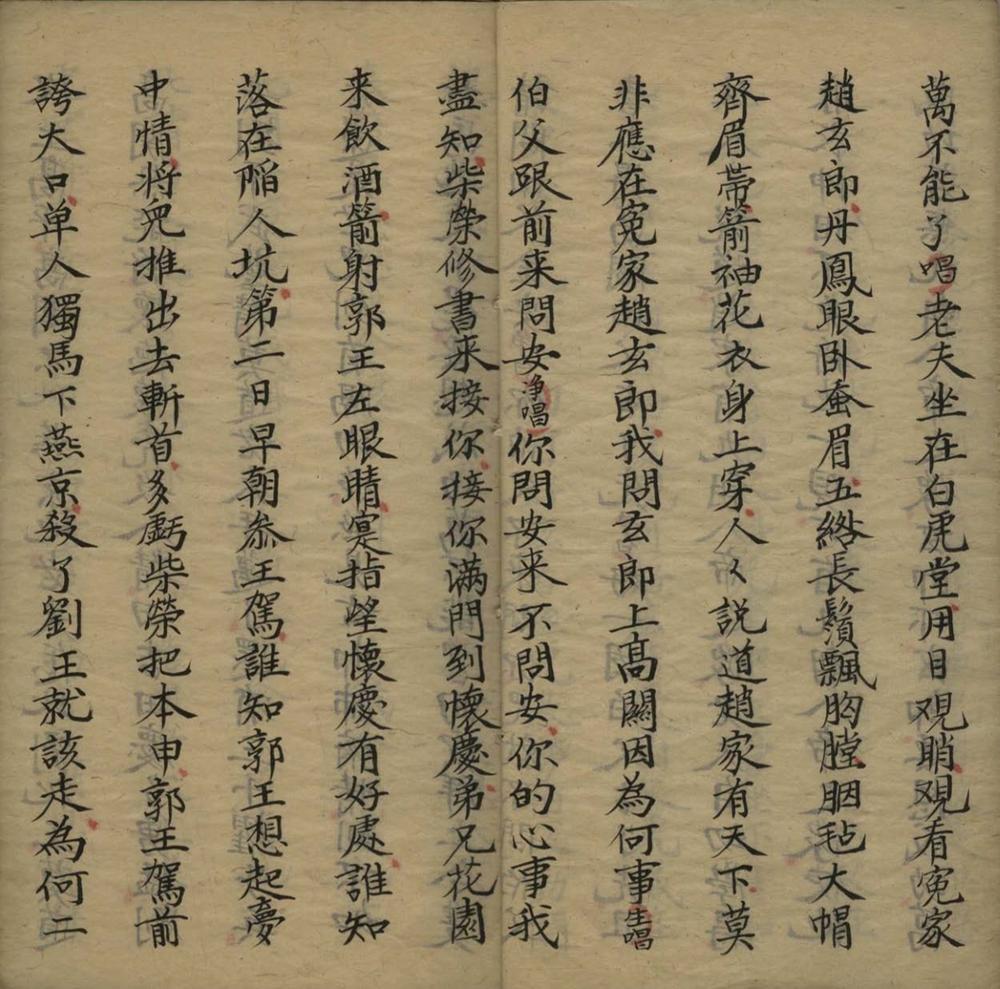 萬不能了唱老夫坐在白虎堂用目观睄观看寃家
趙玄郎丹鳳眼卧蚕眉五綹長鬚飄胸膛胭毡大帽
齊眉帶箭袖花衣身上穿人々説道趙家有天下莫
非應在寃家趙玄郎我問玄郎上髙關因為何事生唱
伯父跟前来問安净唱你問安来不問安你的心事我
盡知柴榮修書来接你接你滿門到懷慶弟兄花園
来飲酒箭射郭王左眼睛寞指望懷慶有好處誰知
落在陷人坑第二日早朝叅王駕誰知郭王想起夢
中情將児推出去斬首多虧柴榮把本申郭王駕前
誇大口单人獨馬下燕京殺了劉王就該走為何二